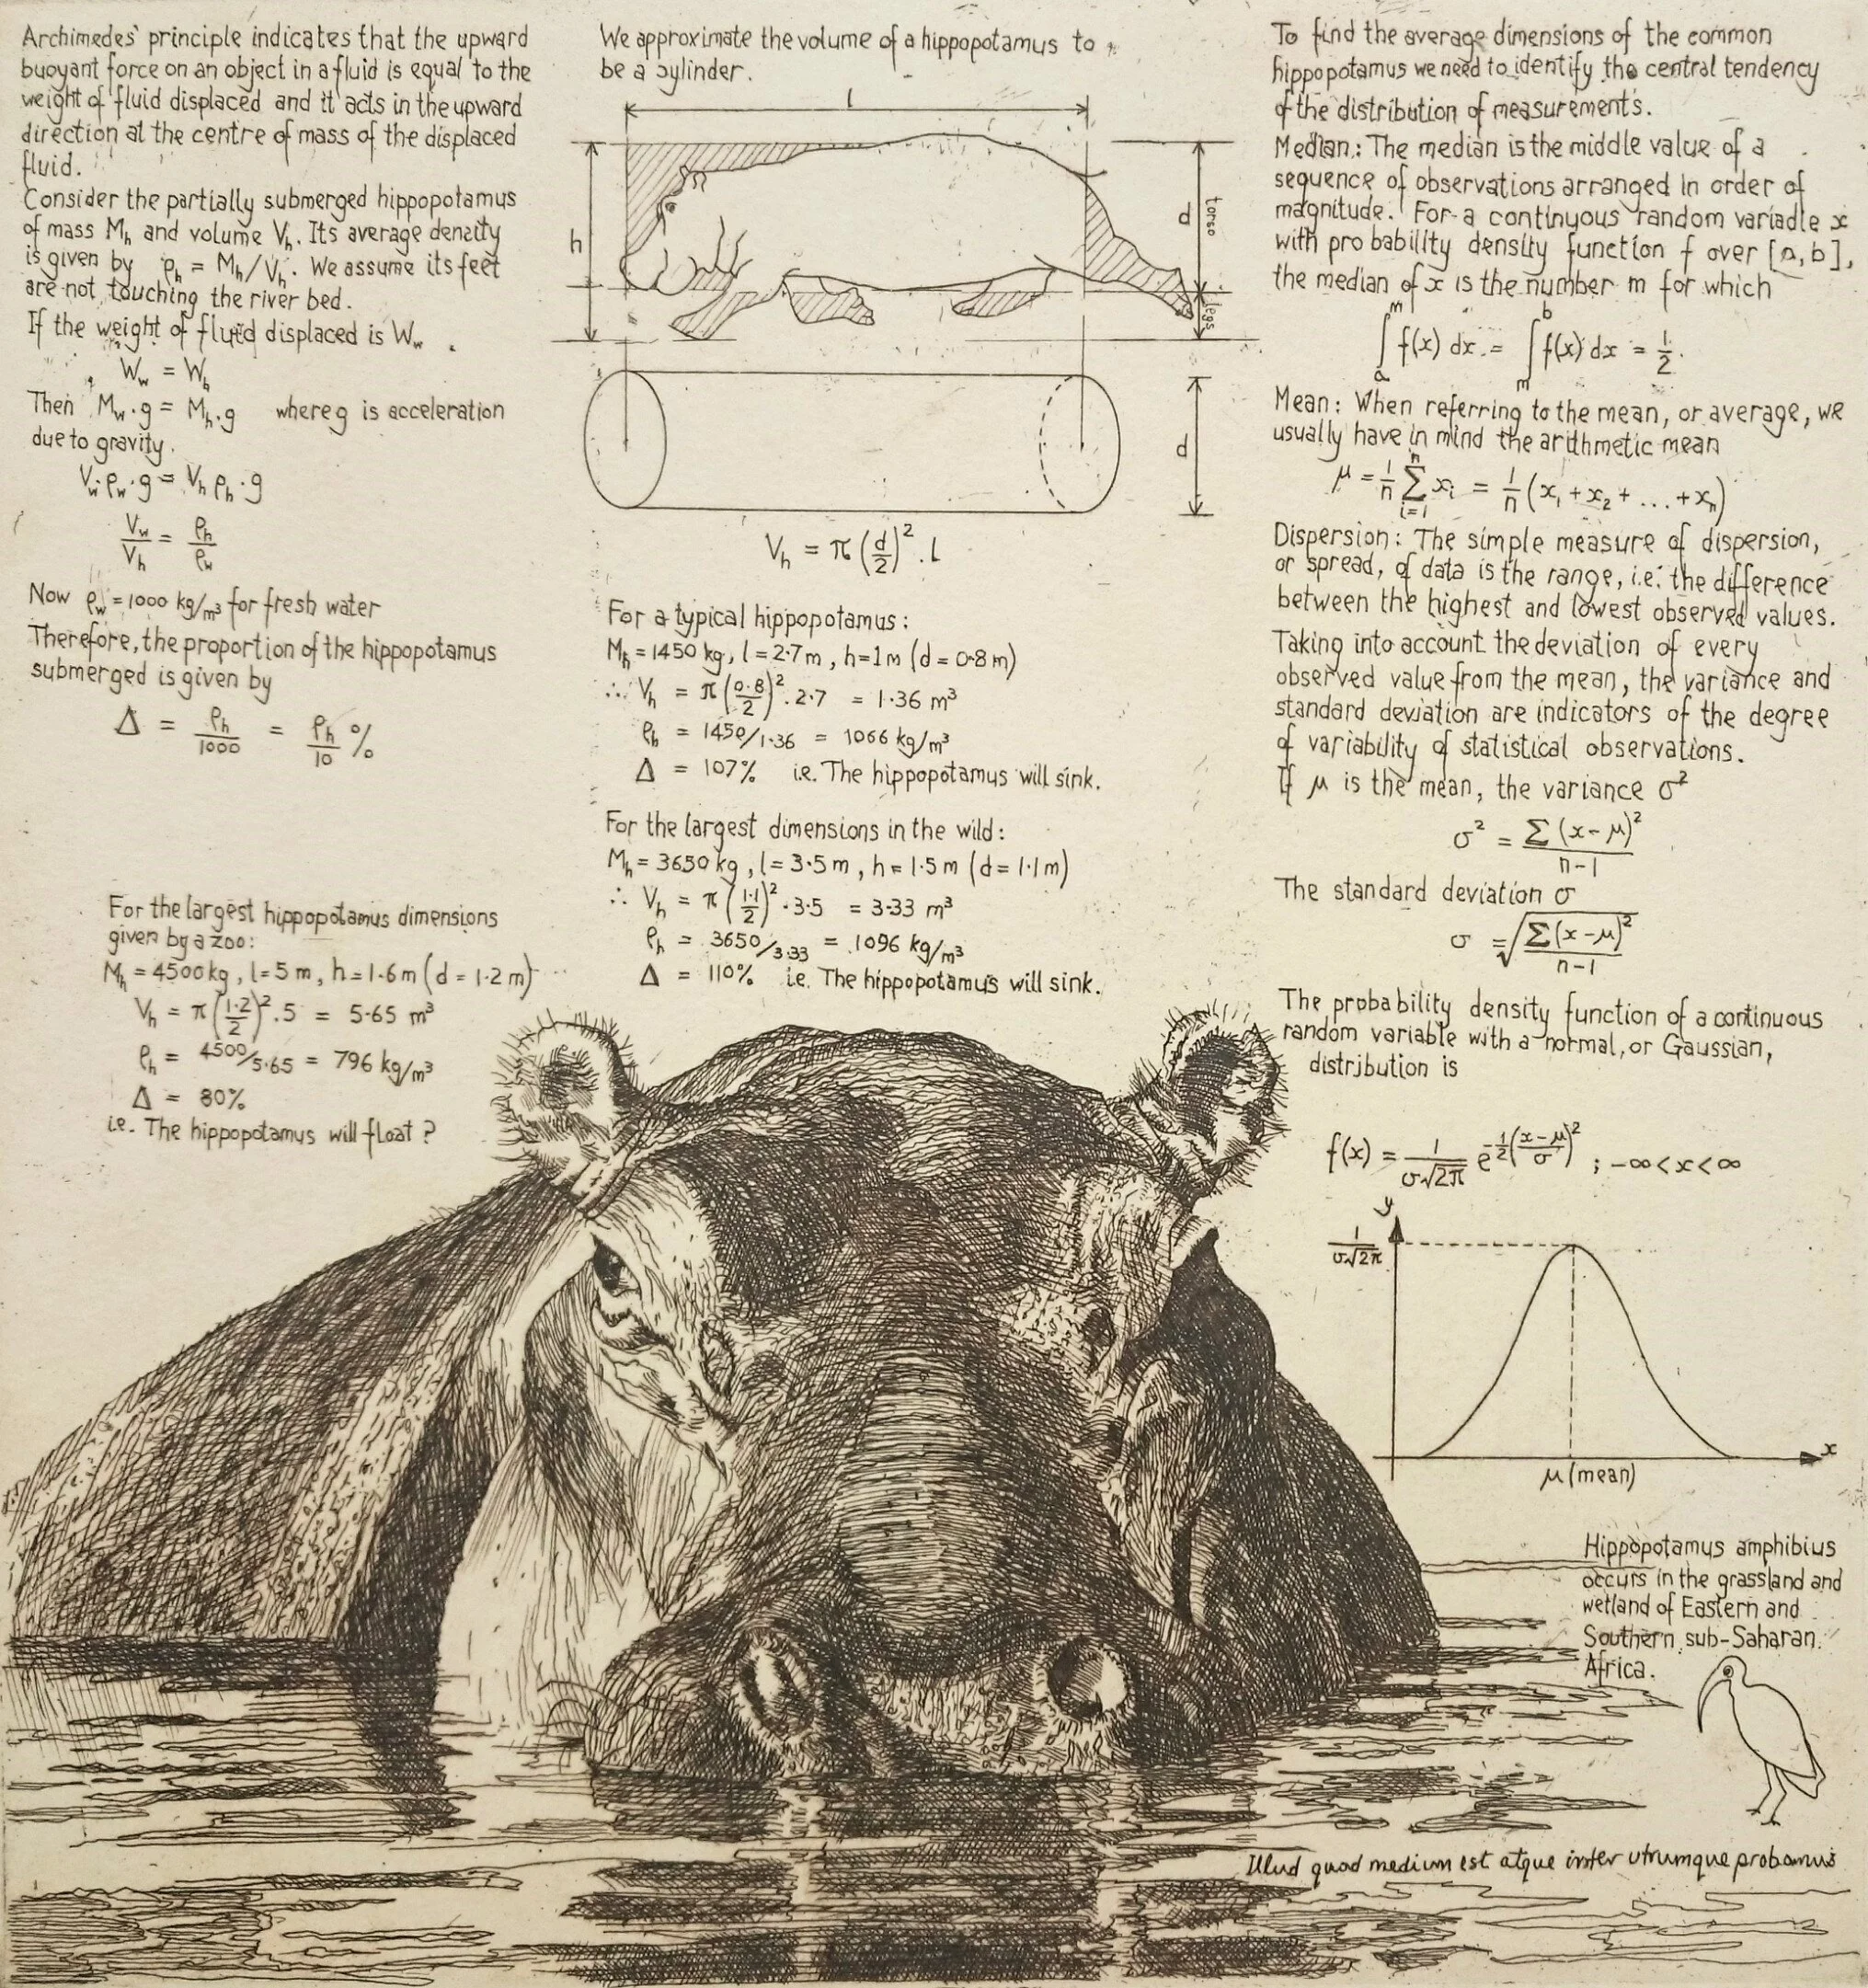 Archimedes' principle indicates that the upward
buoyant force on an object in a fluid is equal to the
weight of fluid displaced and it acts in the upward
direction at the centre of mass of the displaced
fluid.
Consider the partially submerged hippopotamus
of mass Mₕ and volume Vₕ. Its average density
is given by ρₕ = Mₕ/Vₕ. We assume its feet
are not touching the river bed.
If the weight of fluid displaced is W_w
W_w = Wₕ
Then M_w·g = Mₕ·g where g is acceleration
due to gravity.
V_w ρ_w·g = Vₕ ρₕ·g
V_w/Vₕ = ρₕ/ρ_w
Now ρ_w = 1000 kg/m³ for fresh water
Therefore, the proportion of the hippopotamus
submerged is given by
Δ = ρₕ/1000 = ρₕ/10 %
For the largest hippopotamus dimensions
given by a zoo:
Mₕ = 4500kg, l = 5 m, h = 1·6 m (d = 1·2 m)
Vₕ = π(1·2/2)².5 = 5·65 m³
ρₕ = 4500/5·65 = 796 kg/m³
Δ = 80%
i.e. The hippopotamus will float?
We approximate the volume of a hippopotamus to
be a cylinder.
l
h
d
torso
legs
d
Vₕ = π(d/2)².l
For a typical hippopotamus:
Mₕ = 1450 kg, l = 2·7 m, h = 1 m (d = 0·8 m)
∴ Vₕ = π(0·8/2)².2·7 = 1·36 m³
ρₕ = 1450/1·36 = 1066 kg/m³
Δ = 107% i.e. The hippopotamus will sink.
For the largest dimensions in the wild:
Mₕ = 3650 kg, l = 3·5 m, h = 1·5 m (d = 1·1 m)
∴ Vₕ = π(1·1/2)².3·5 = 3·33 m³
ρₕ = 3650/3·33 = 1096 kg/m³
Δ = 110% i.e. The hippopotamus will sink.
To find the average dimensions of the common
hippopotamus we need to identify the central tendency
of the distribution of measurements.
Median: The median is the middle value of a
sequence of observations arranged in order of
magnitude. For a continuous random variable x
with probability density function f over [a,b],
the median of x is the number m for which
∫ₐᵐ f(x) dx = ∫ₘᵇ f(x) dx = 1/2.
Mean: When referring to the mean, or average, we
usually have in mind the arithmetic mean
μ = 1/n Σᵢ₌₁ⁿ xᵢ = 1/n (x₁ + x₂ + ... + xₙ)
Dispersion: The simple measure of dispersion,
or spread, of data is the range, i.e. the difference
between the highest and lowest observed values.
Taking into account the deviation of every
observed value from the mean, the variance and
standard deviation are indicators of the degree
of variability of statistical observations.
If μ is the mean, the variance σ²
σ² = Σ(x-μ)²/n-1
The standard deviation σ
σ = √(Σ(x-μ)²/n-1)
The probability density function of a continuous
random variable with a normal, or Gaussian,
distribution is
f(x) = 1/σ√2π e^-1/2((x-μ)/σ)² ; -∞ < x < ∞
y
1/σ√2π
x
μ (mean)
Hippopotamus amphibius
occurs in the grassland and
wetland of Eastern and
Southern sub-Saharan
Africa.
Illud quod medium est atque inter utrumque probamus